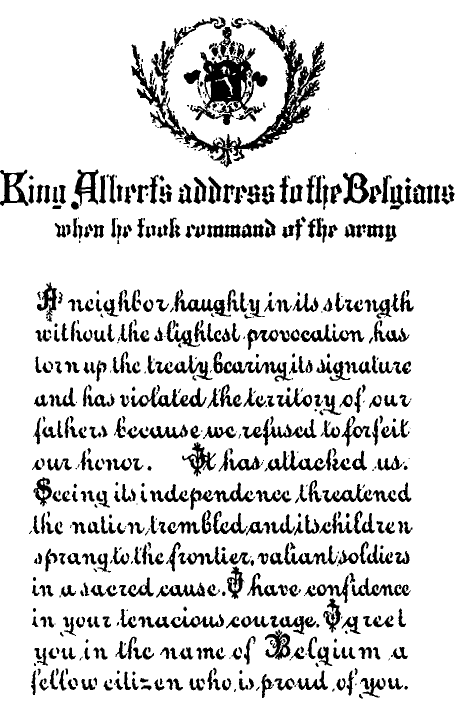 King Albert's address to the Belgians
when he took command of the army
A neighbor haughty in its strength
without the slightest provocation has
torn up the treaty bearing its signature
and has violated the territory of our
fathers because we refused to forfeit
our honor. It has attacked us.
Seeing its independence threatened
the nation trembled, and its children
sprang to the frontier, valiant soldiers
in a sacred cause. I have confidence
in your tenacious courage. I greet
you in the name of Belgium a
fellow citizen who is proud of you.